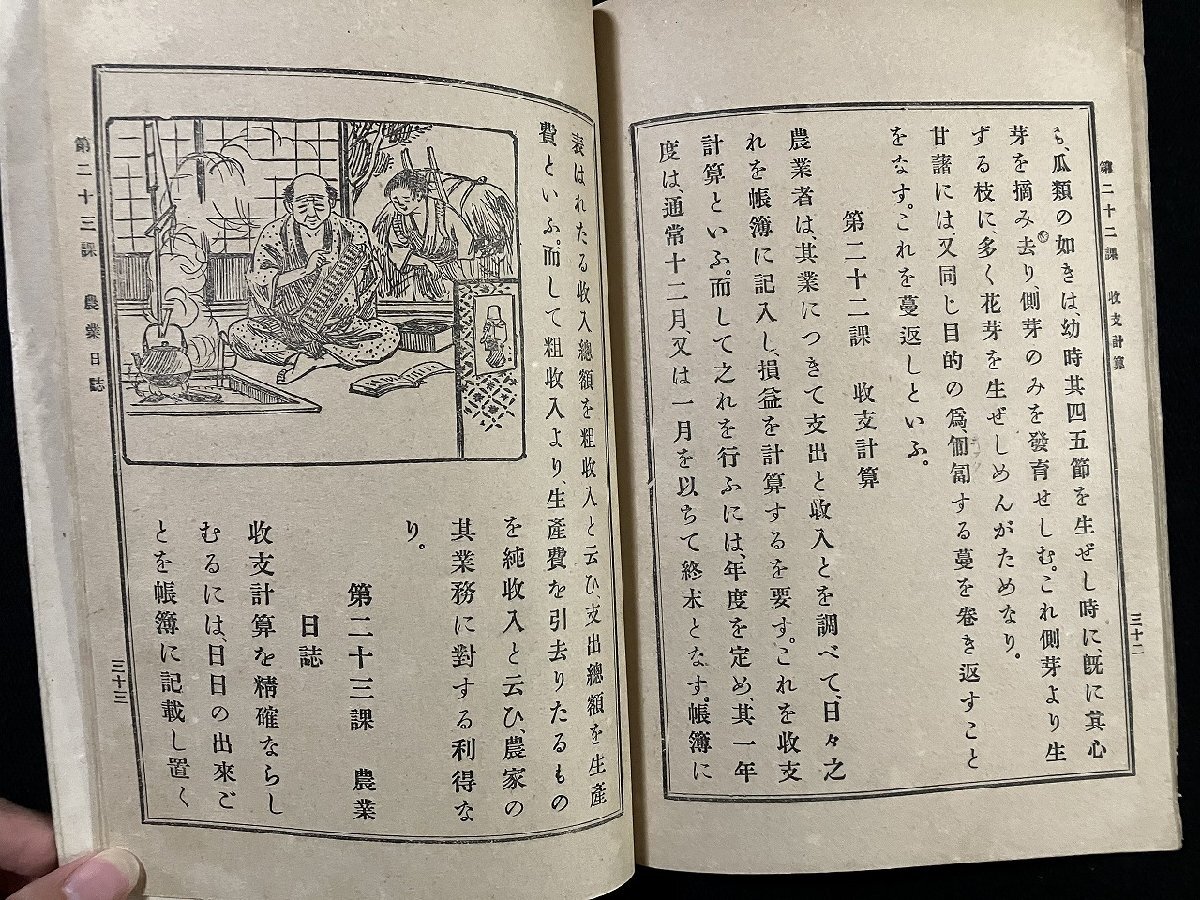 第二十二課 收支計算
三十二
ち、瓜類の如きは、幼時其四五節を生ぜし時に、既に其心
芽を摘み去り、側芽のみを發育せしむ。これ側芽より生
ずる枝に、多く花芽を生ぜしめんがためなり。
甘諸には、又同じ目的の爲、匍匐する蔓を卷き返すこと
をなす。これを蔓返しといふ。
第二十二課 收支計算
農業者は、其業につきて支出と收入とを調べて、日々之
れを帳簿に記入し、損益を計算するを要す。これを收支
計算といふ。而して之れを行ふには、年度を定め、其一年
度は、通常十二月、又は一月を以ちて終末となす。帳簿に
表はれたる收入總額を粗收入と云ひ、支出總額を生產
費といふ。而して粗收入より、生產費を引去りたるもの
を純收入と云ひ、農家の
其業務に對する利得な
り。
第二十三課 農業
日誌
收支計算を精確ならし
むるには、日日の出來ご
とを帳簿に記載し置く
第二十三課 農業日誌
三十三